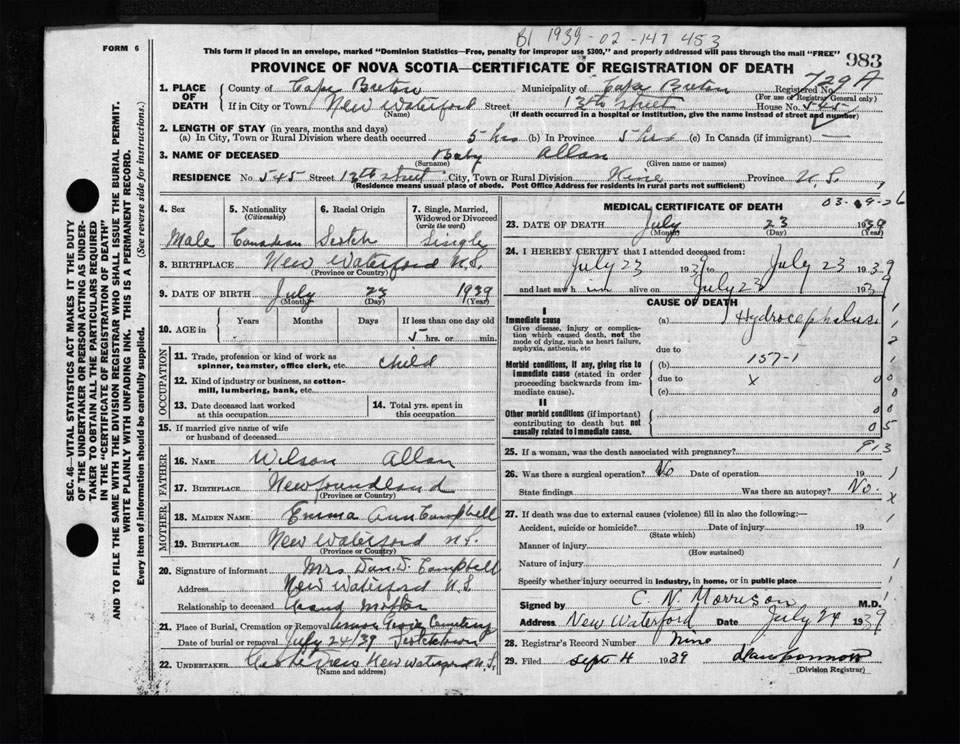 B1 1939-02-147 453
FORM 6
This form if placed in an envelope, marked "Dominion Statistics—Free, penalty for improper use $300," and properly addressed will pass through the mail "FREE"
983
PROVINCE OF NOVA SCOTIA—CERTIFICATE OF REGISTRATION OF DEATH
729A
1. PLACE OF DEATH
County of Cape Breton Municipality of Cape Breton Registered No.
(For use of Registrar General only)
If in City or Town New Waterford Street 13th Street House No. 545
(Name) (If death occurred in a hospital or institution, give the name instead of street and number)
2. LENGTH OF STAY (in years, months and days)
(a) In City, Town or Rural Division where death occurred 5 hrs (b) In Province 5 hrs (c) In Canada (if immigrant) —
3. NAME OF DECEASED Baby Allan
(Surname) (Given name or names)
RESIDENCE No 545 Street 13th Street City, Town or Rural Division Nine Province N.S.
(Residence means usual place of abode. Post Office Address for residents in rural parts not sufficient)
SEC. 46—VITAL STATISTICS ACT MAKES IT THE DUTY
OF THE UNDERTAKER OR PERSON ACTING AS UNDER-
TAKER TO OBTAIN ALL THE PARTICULARS REQUIRED
IN THE "CERTIFICATE OF REGISTRATION OF DEATH"
AND TO FILE THE SAME WITH THE DIVISION REGISTRAR WHO SHALL ISSUE THE BURIAL PERMIT.
WRITE PLAINLY WITH UNFADING INK. THIS IS A PERMANENT RECORD.
Every item of information should be carefully supplied. (See reverse side for instructions.)
4. Sex 5. Nationality (Citizenship) 6. Racial Origin 7. Single, Married, Widowed or Divorced (write the word)
Male Canadian Scotch Single
8. BIRTHPLACE New Waterford N.S.
(Province or Country)
9. DATE OF BIRTH July 23 1939
(Month) (Day) (Year)
10. AGE in Years Months Days If less than one day old
5 hrs. or min.
OCCUPATION
11. Trade, profession or kind of work as spinner, teamster, office clerk, etc. child
12. Kind of industry or business, as cotton-mill, lumbering, bank, etc.
13. Date deceased last worked at this occupation 14. Total yrs. spent in this occupation
15. If married give name of wife or husband of deceased
FATHER
16. NAME Wilson Allan
17. BIRTHPLACE Newfoundland
(Province or Country)
MOTHER
18. MAIDEN NAME Emma Ann Campbell
19. BIRTHPLACE New Waterford N.S.
(Province or Country)
20. Signature of informant Mrs Dan. D. Campbell
Address New Waterford N.S.
Relationship to deceased Grand Mother
21. Place of Burial, Cremation or Removal Cemetery
Date of burial or removal July 24/39
22. UNDERTAKER New Waterford N.S.
(Name and address)
MEDICAL CERTIFICATE OF DEATH
23. DATE OF DEATH July 23 1939
(Month) (Day) (Year)
24. I HEREBY CERTIFY that I attended deceased from:
July 23 1939 to July 23 1939
and last saw him alive on July 23 1939
CAUSE OF DEATH
I
Immediate cause (a) Hydrocephalus
Give disease, injury or complica-
tion which caused death, not the
mode of dying, such as heart failure,
asphyxia, asthenia, etc
due to
Morbid conditions, if any, giving rise to (b) 157-1
immediate cause (stated in order due to x
proceeding backwards from im-
mediate cause). (c)
II
Other morbid conditions (if important)
contributing to death but not
causally related to immediate cause.
25. If a woman, was the death associated with pregnancy? 913
26. Was there a surgical operation? No Date of operation 19
State findings Was there an autopsy? No.
27. If death was due to external causes (violence) fill in also the following:—
Accident, suicide or homicide? Date of injury 19
(State which)
Manner of injury
(How sustained)
Nature of injury
Specify whether injury occurred in industry, in home, or in public place
Signed by C. N. Morrison M.D.
Address New Waterford Date July 24 1939
28. Registrar's Record Number Nine
29. Filed Sept 4 1939
(Division Registrar)